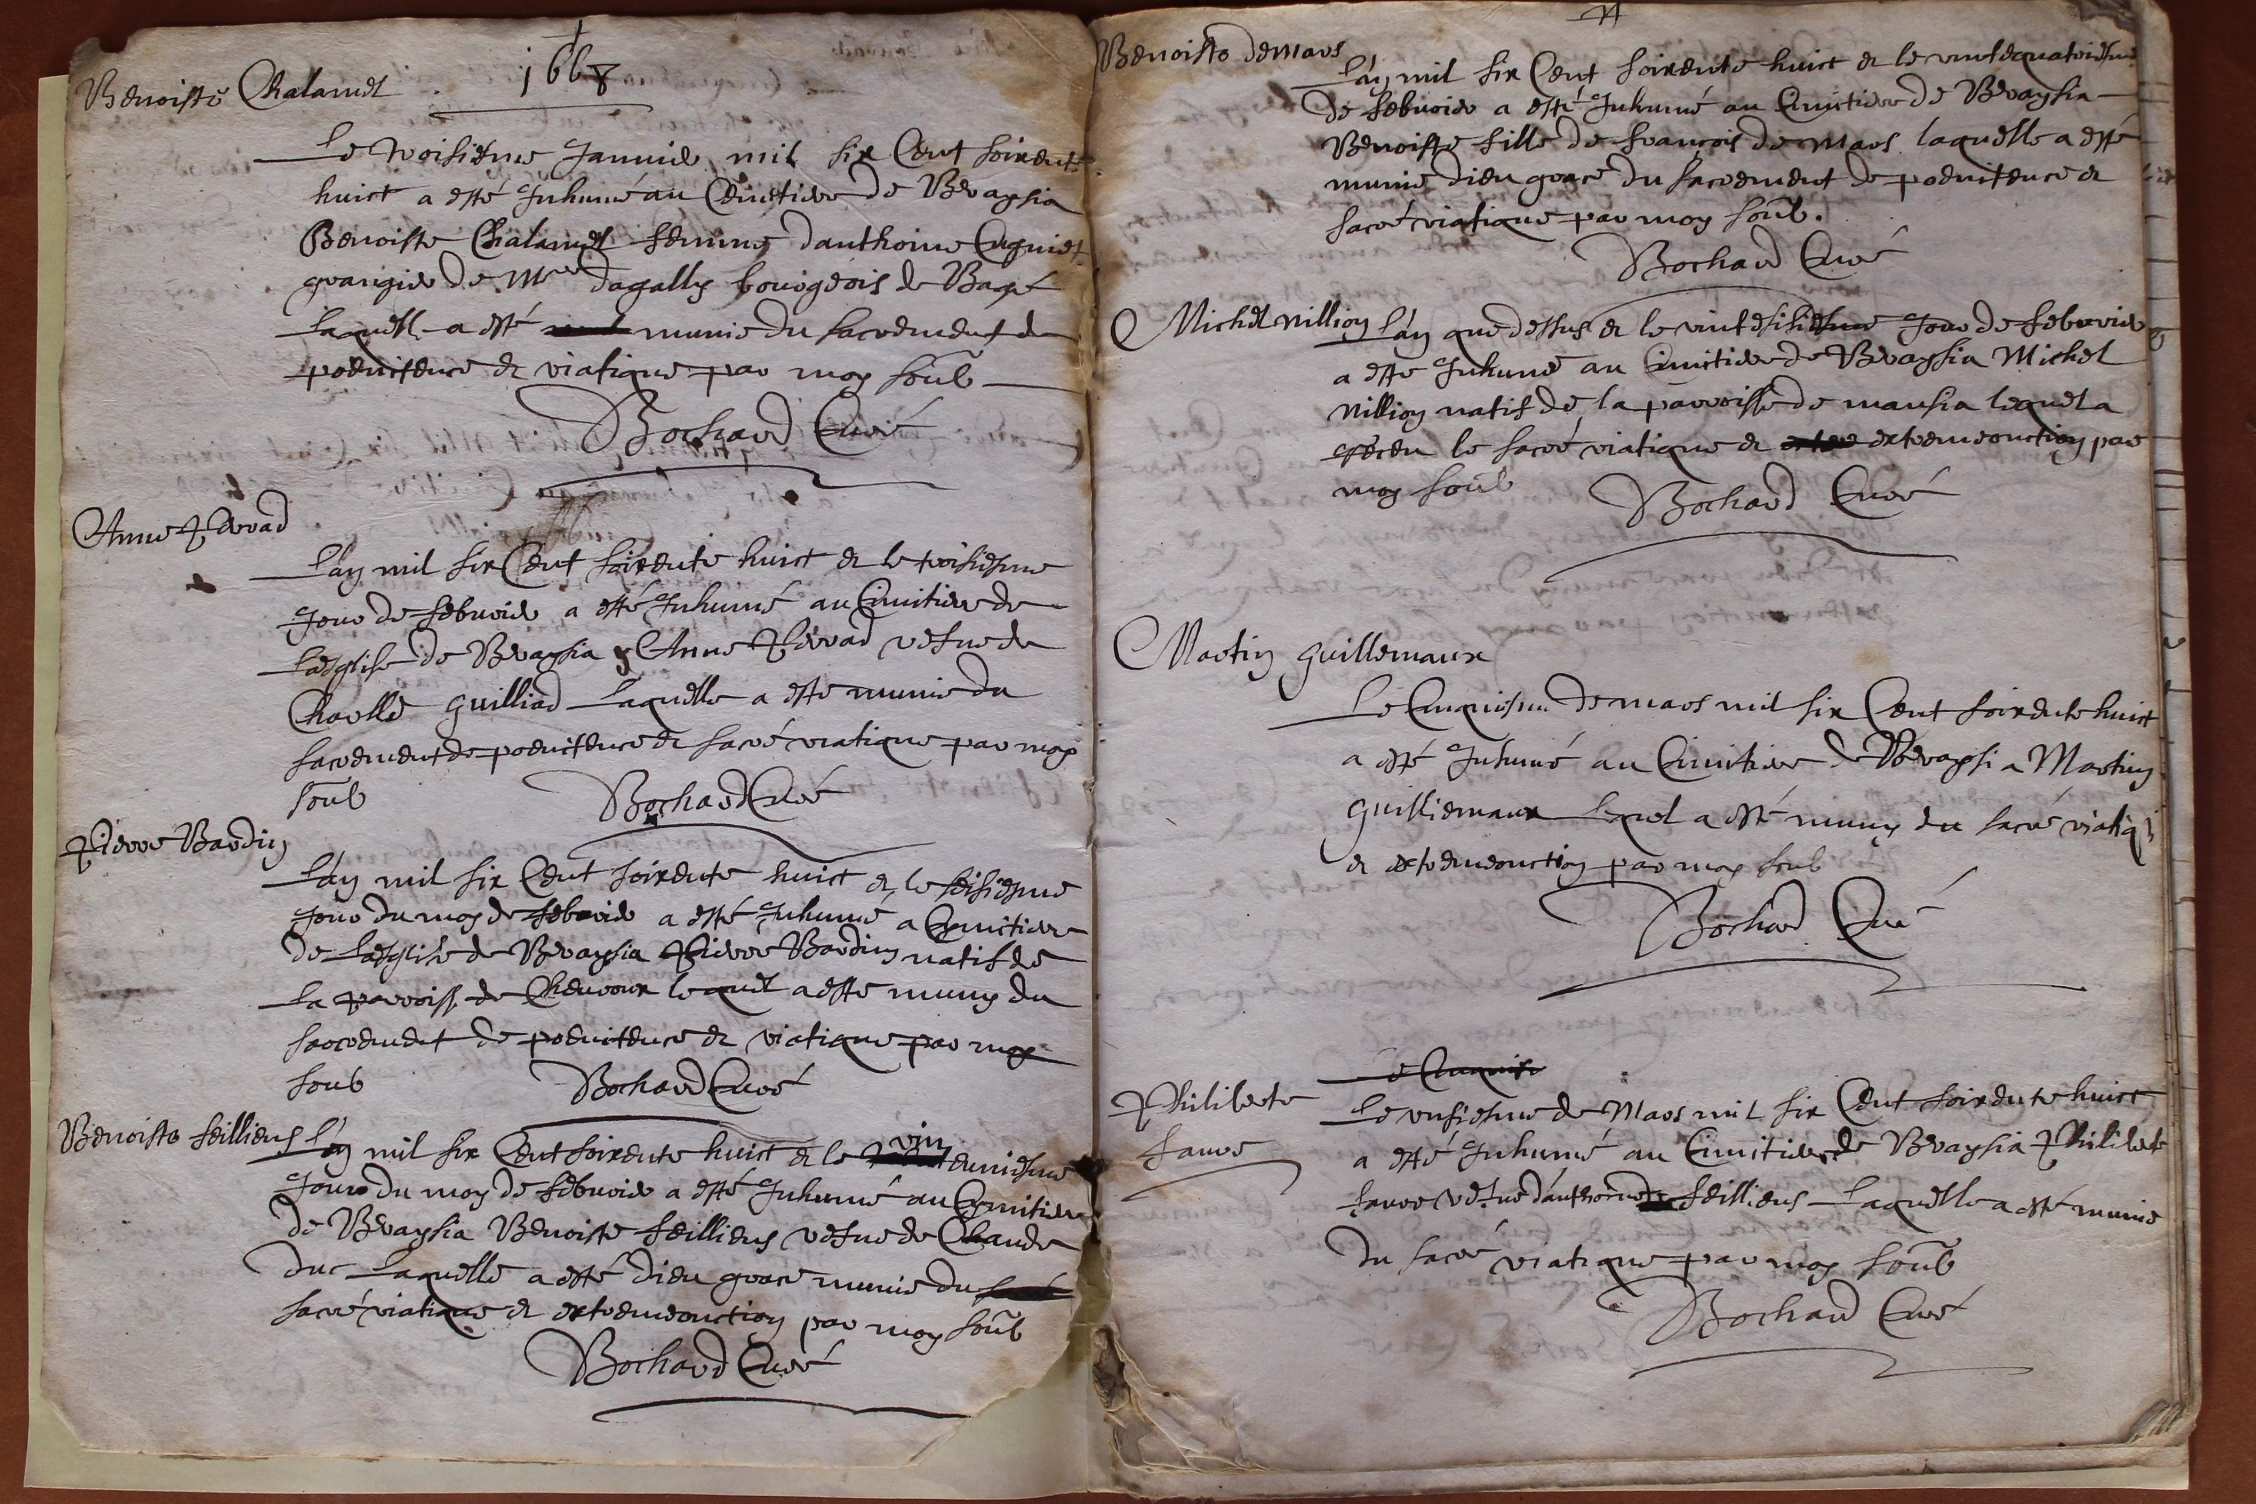 1668
Benoiste Chalamel
Le troisiesme Janvier mil six Cent soixente
huict a esté Inhumé au Cemitiere de Bevaysia
Benoiste Chalamel femme danthoine
grangier de Mre dagally bourgeois de Bagé
Laquell a esté munie du sacrement de
poenitence et viatique par moy soub
Bochard Curé
Anne Perrad
Lan mil six Cent soixente huict et le troisiesme
Jour de febvrier a esté Inhumé au Cimitiere de
Lesglise de Bevaysia Anne Perrad vefue de
Charlle Guilliad Laquelle a este munie du
sacrement de poenitence et sacré viatique par moy
soub
Bochard Curé
Pierre Bardin
Lan mil six Cent soixente huict et le seisiesme
Jour du moy de febvrier a esté Inhumé a Cimitiere
de Lesglise de Bevaysia Pierre Bardin natif de
La parroiss de Chevroux lequel a este muny du
sacrement de poenitence et viatique par moy
soub
Bochard Curé
Benoiste feilliens
Lan mil six Cent soixente huict et le vin
Jour du moy de febvrier a esté Inhumé au Cemitiere
de Bevaysia Benoiste feilliens vefue de Claude
Duc Laquelle a esté dieu grace munie du
sacré viatique et extremeonction par moy soub
Bochard Curé
Benoiste demars
Lan mil six Cent soixente huict et le vintequatriesme
de febvrier a esté Inhumé au Cimitiere de Bevaysia
Benoiste fille de francois de mars laquelle a esté
munie dieu grace du sacrement de poenitence et
sacré viatique par moy soub.
Bochard Curé
Michel nillion
Lan que dessus et le vintesisiesme Jour de febvrier
a este Inhumé au Cimitiere de Bevaysia Michel
nillion natif de la parroisse de mansia lequel a
receu le sacré viatique et extremeonction par
moy soub
Bochard Curé
Martin guillemaux
Le Cinquiesme de mars mil six Cent soixente huict
a esté Inhumé au Cimitiere de Bevaysia Martin
guilliemaux lequel a esté muny du sacré viatiq
et extremeonction par moy soub
Bochard Curé
Le Cinquies
Philiberte
favre
Le unsiesme de Mars mil six Cent soixente huict
a esté Inhumé au Cimitiere de Bevaysia Philiberte
favre vefue danthoine feilliens Laquelle a esté munie
du sacré viatique par moy soub
Bochard Curé